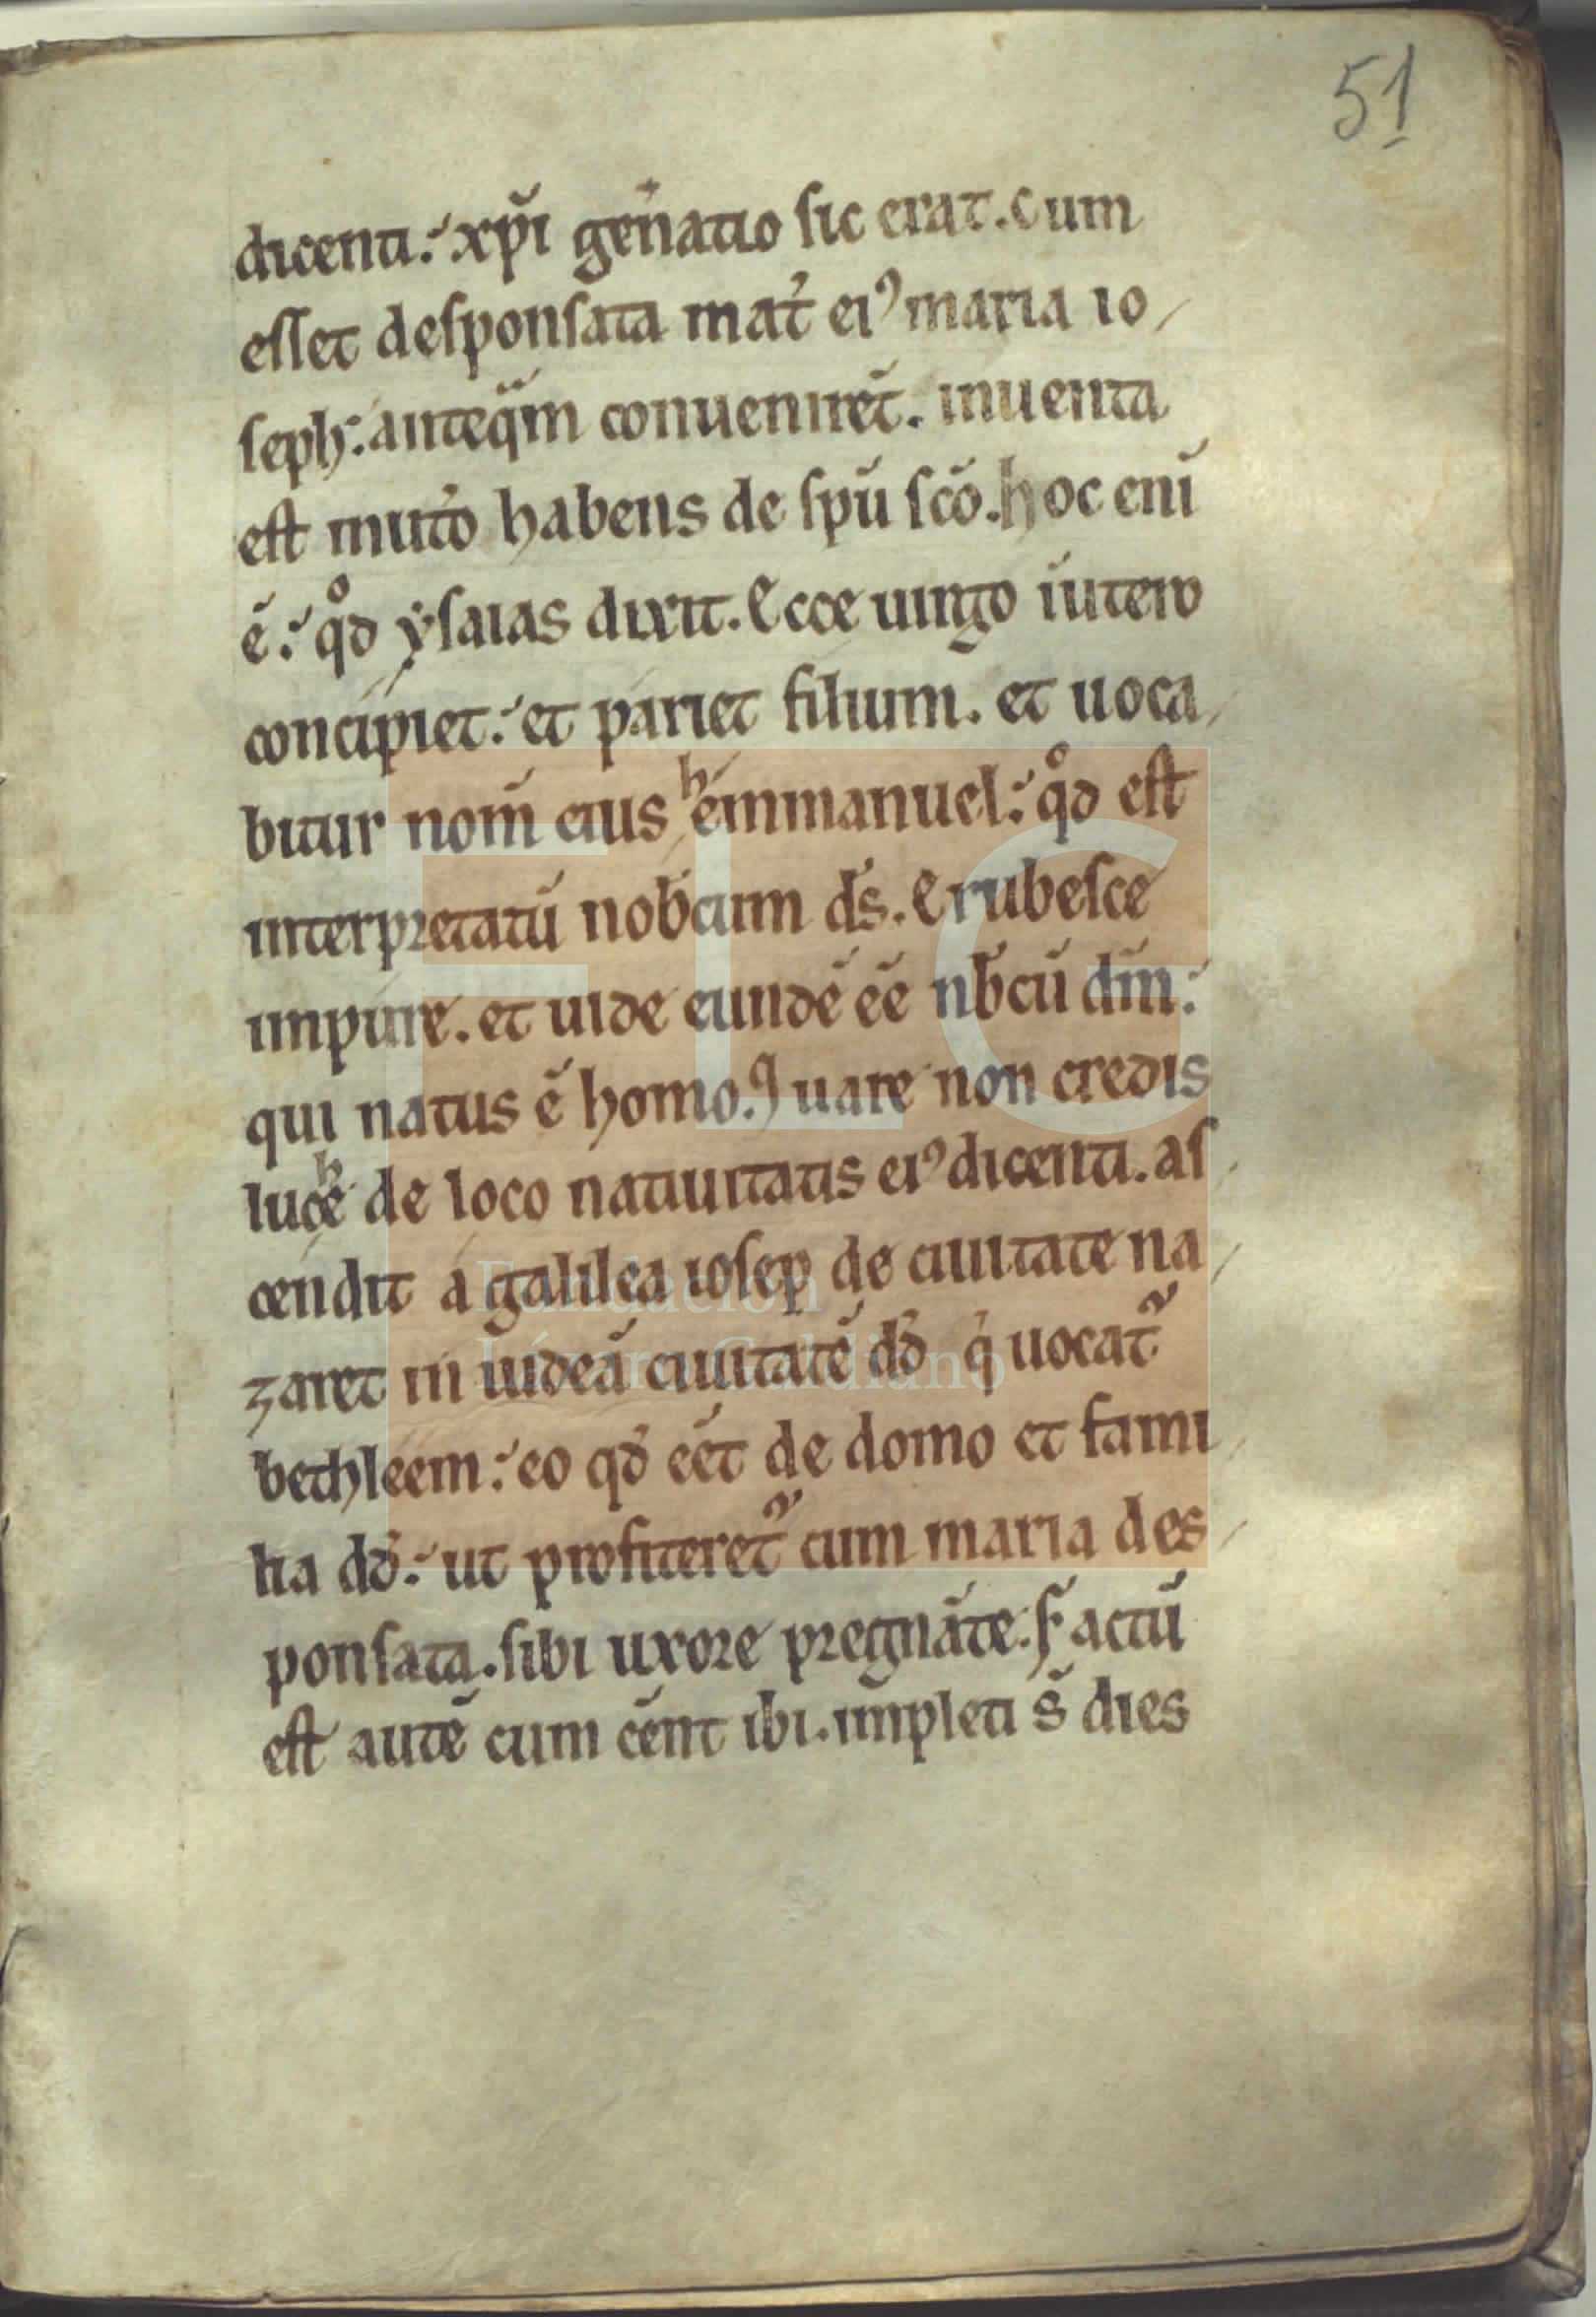 51
dicenti. xp̄i gen̄atio sic erat. Cum
esset desponsata mat̄ ei᾽ maria io
seph: anteq̄m conuenirēt. inuenta
est in utō habens de sp̄u sc̄o. hoc eni̅
ē: qͦd ysaias dixit. Ecce uirgo i̅ utero
concipiet: et pariet filium. et uoca
bitur nom̄ eius hemmanuel: qͦd est
interpretatū nob̄cum d̄s. Erubesce
impure. et uide eundē ēē nb̄cū dm̄:
qui natus ē homo. Quare non credis
luche de loco natiuitatis ei᾽ dicenti. as
cendit a galilea iosep de ciuitate na
zaret in iudeā ciuitatē dd̄ q̄ uocat᾽
bethleem: eo qd̄ eēt de domo et fami
lia dd̄: ut profiteret᾽ cum maria des
ponsata. sibi uxore pregnāte. Factū
est autē cum eēnt ibi. impleti s̄ dies
FLG
Fundación
Lázaro Galdiano